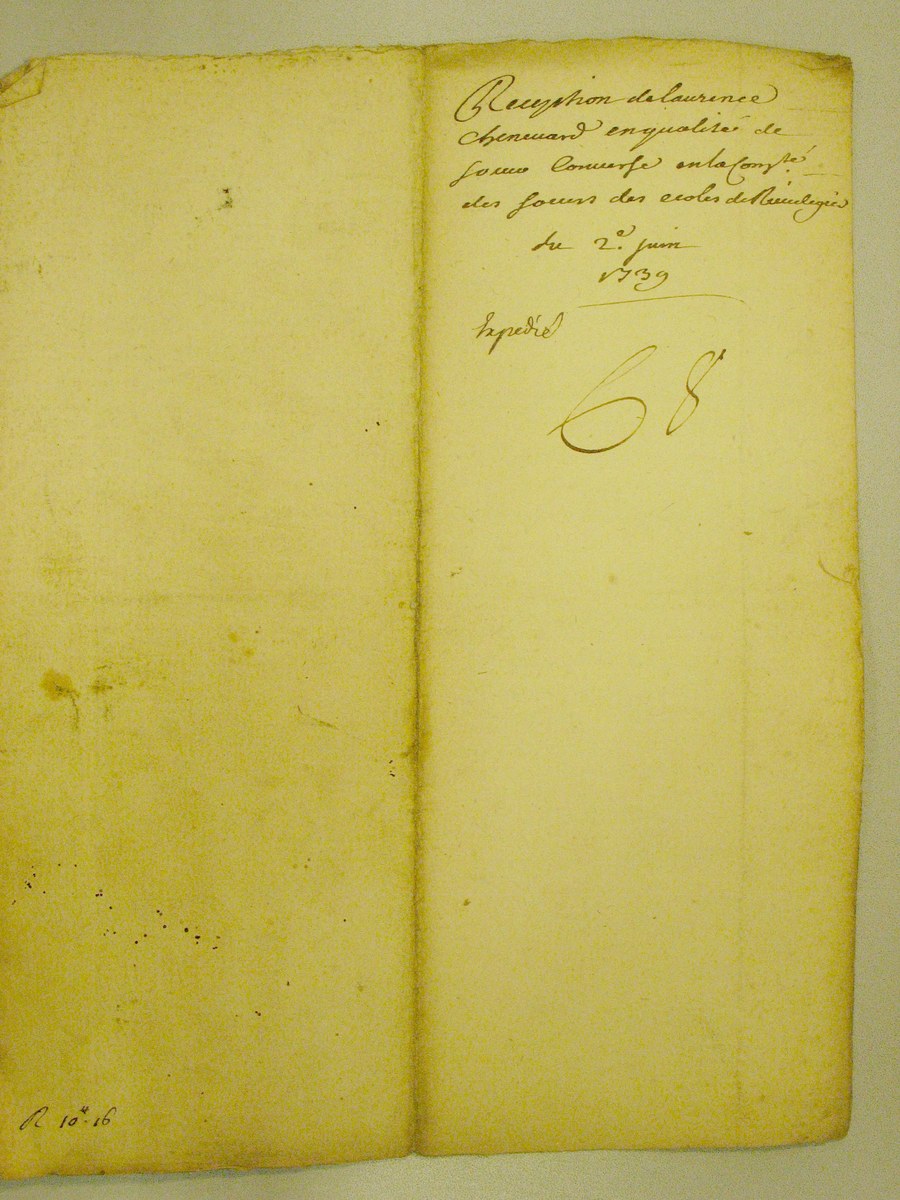 Reception de laurence
chenevard en qualité de
soeur Converse en la Comp.té
des soeurs des ecoles de
du 2e. juin
1739
Expedié
68
R 10tt. 16